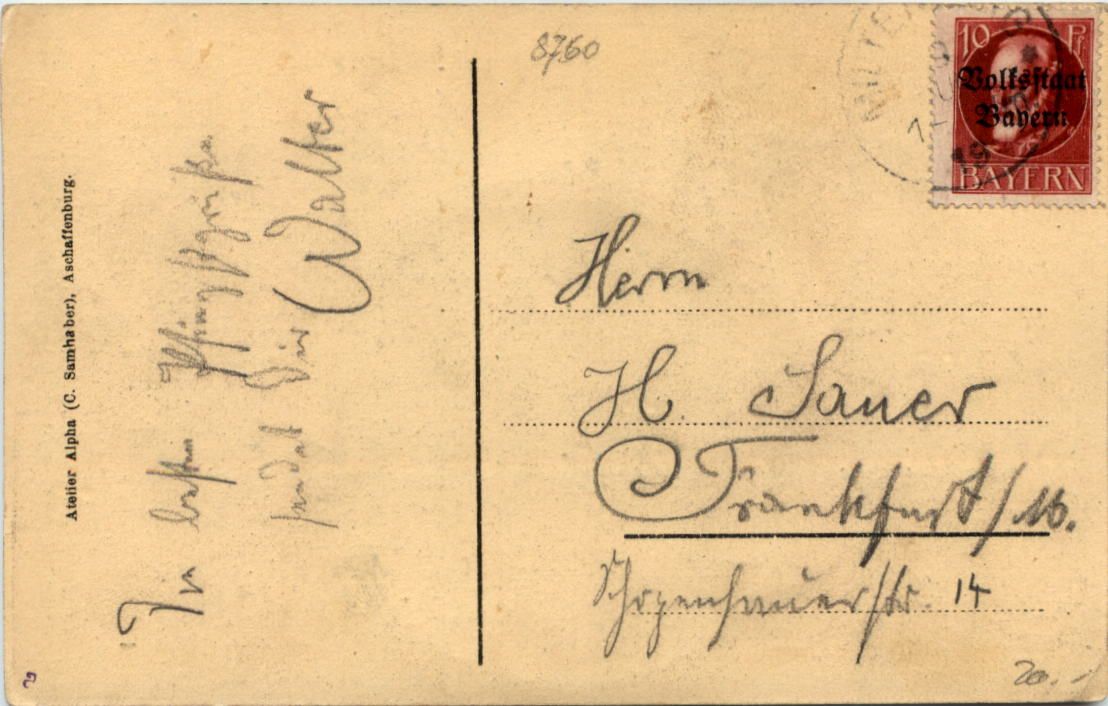 Atelier Alpha (C. Samhaber), Aschaffenburg.
Die besten Pfingstgrüße
sendet Dir
Walter
8760
10 Pf
Volksstaat
Bayern
BAYERN
MILTENBERG
Herrn
H. Sauer
Frankfurt/M.
Schopenhauerstr. 14
20.-